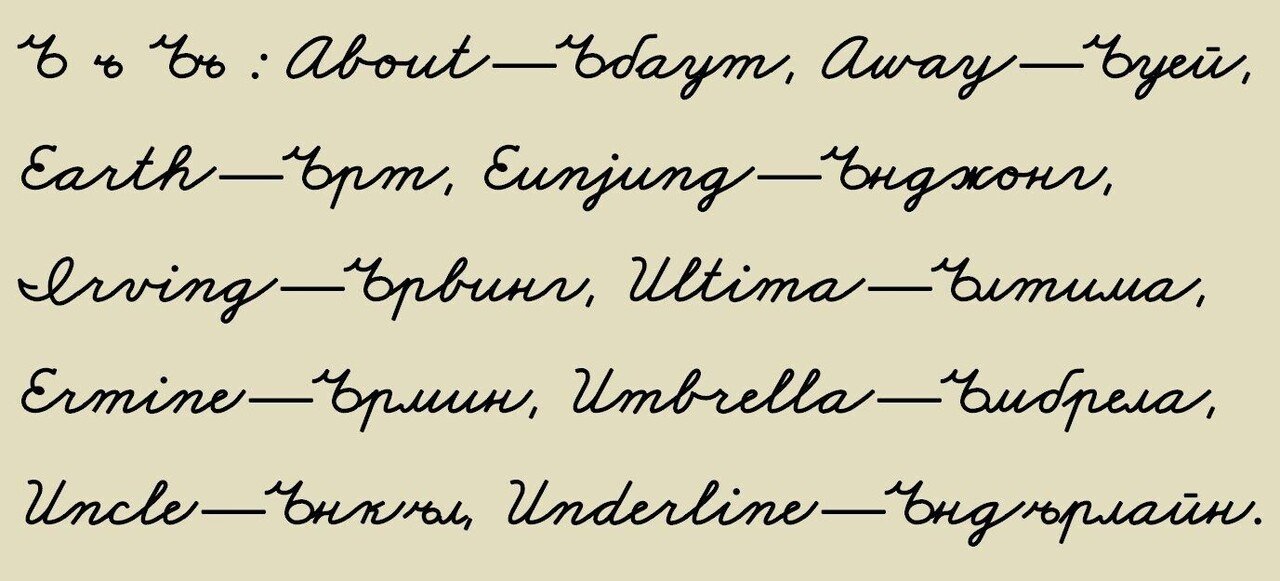 Ъ ъ Ъъ : About—Ъбаут, Away—Ъуей,
Earth—Ърт, Eunjung—Ънджонг,
Irving—Ървинг, Ultima—Ълтима,
Ermine—Ърмин, Umbrella—Ъмбрела,
Uncle—Ънкъл, Underline—Ъндърлайн.